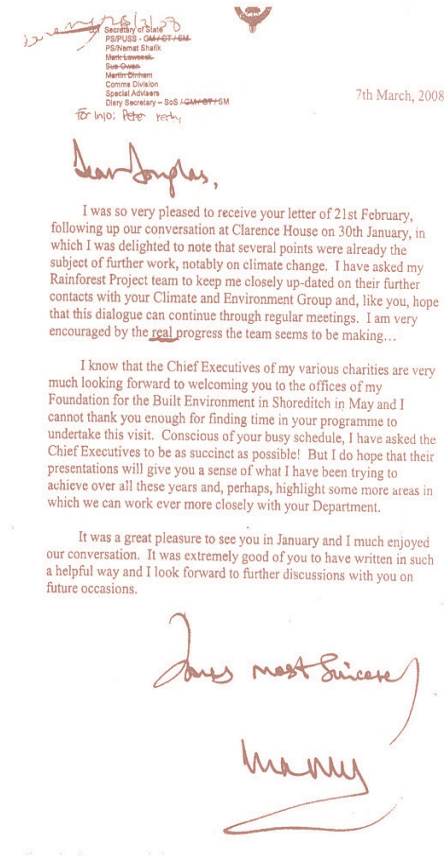 Secretary of State
PS/PUSS - GM / GT / SM
PS/Nemat Shafik
Mark Lowcock
Sue Owen
Martin Dinham
Comms Division
Special Advisers
Diary Secretary – SoS / GM / GT / SM
For info: Peter
7th March, 2008
Dear Douglas,
I was so very pleased to receive your letter of 21st February,
following up our conversation at Clarence House on 30th January, in
which I was delighted to note that several points were already the
subject of further work, notably on climate change. I have asked my
Rainforest Project team to keep me closely up-dated on their further
contacts with your Climate and Environment Group and, like you, hope
that this dialogue can continue through regular meetings. I am very
encouraged by the real progress the team seems to be making…
I know that the Chief Executives of my various charities are very
much looking forward to welcoming you to the offices of my
Foundation for the Built Environment in Shoreditch in May and I
cannot thank you enough for finding time in your programme to
undertake this visit. Conscious of your busy schedule, I have asked the
Chief Executives to be as succinct as possible! But I do hope that their
presentations will give you a sense of what I have been trying to
achieve over all these years and, perhaps, highlight some more areas in
which we can work ever more closely with your Department.
It was a great pleasure to see you in January and I much enjoyed
our conversation. It was extremely good of you to have written in such
a helpful way and I look forward to further discussions with you on
future occasions.
Yours most sincerely